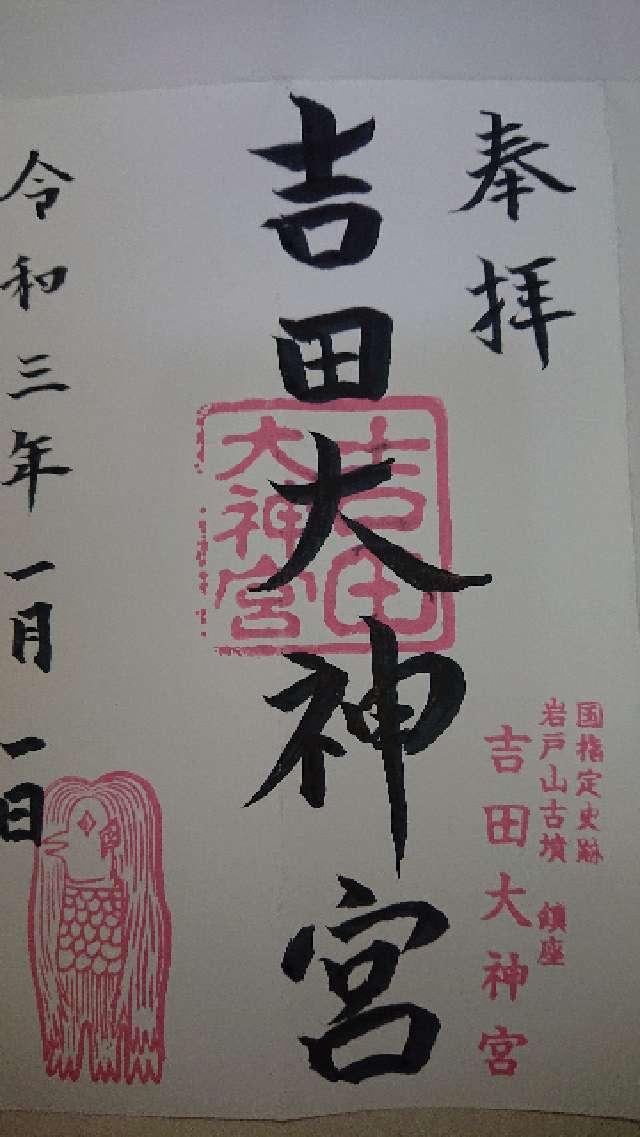 奉拝
国指定史跡
岩戸山古墳 鎮座
吉田大神宮
吉田大神宮
吉田
大神宮
令和三年一月一日